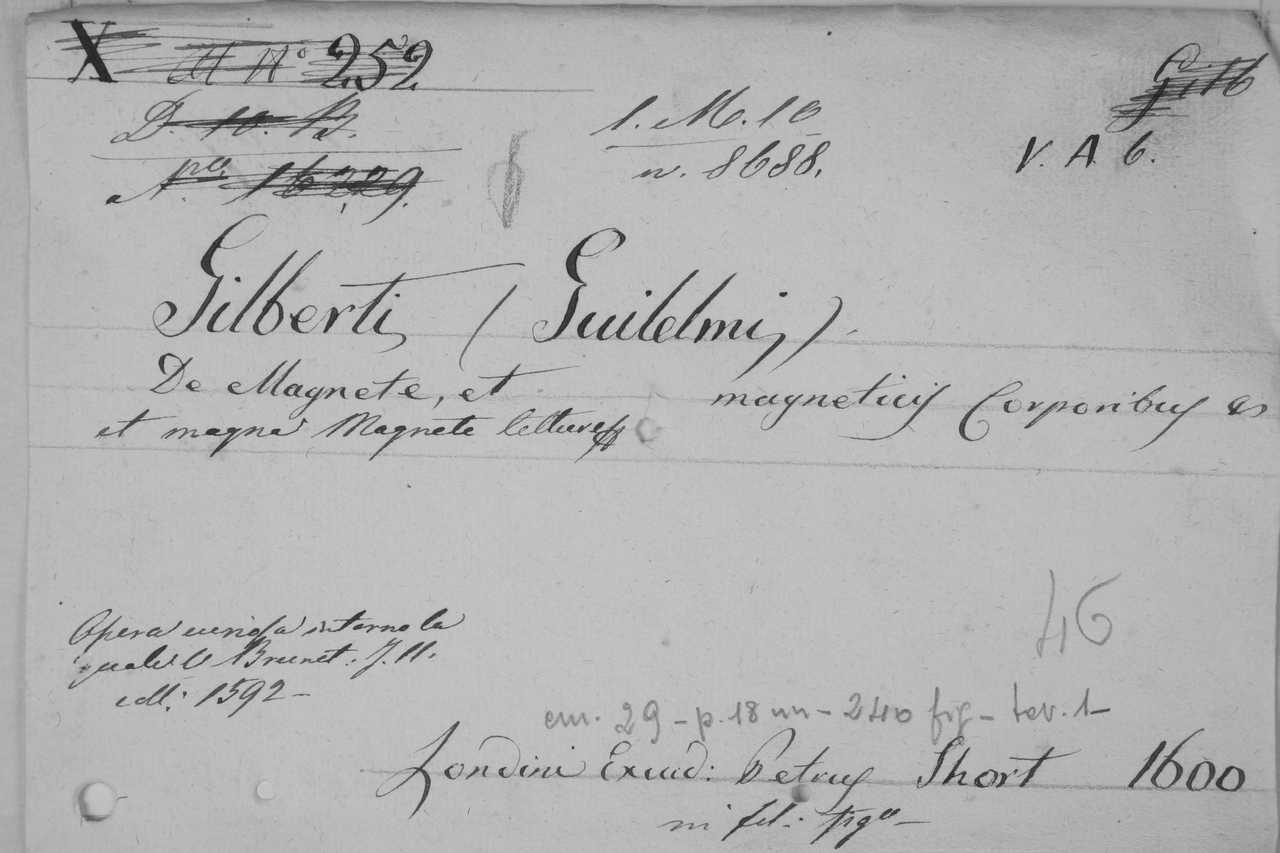 X N° 252
Gilb
D. 10. B.
1. M. 10
n. 8688.
V. A 6.
N.ro 16229.
Gilberti (Guilelmi).
De Magnete, et magneticis Corporibus &
et magno Magnete tellure
Opera curiosa intorno la
quale V. Brunet. T. II.
col: 1592 -
46
cm. 29 - p. 18 nn - 240 fig - tav. 1 -
Londini Excud: Petrus Short 1600
in fol: fig.o -